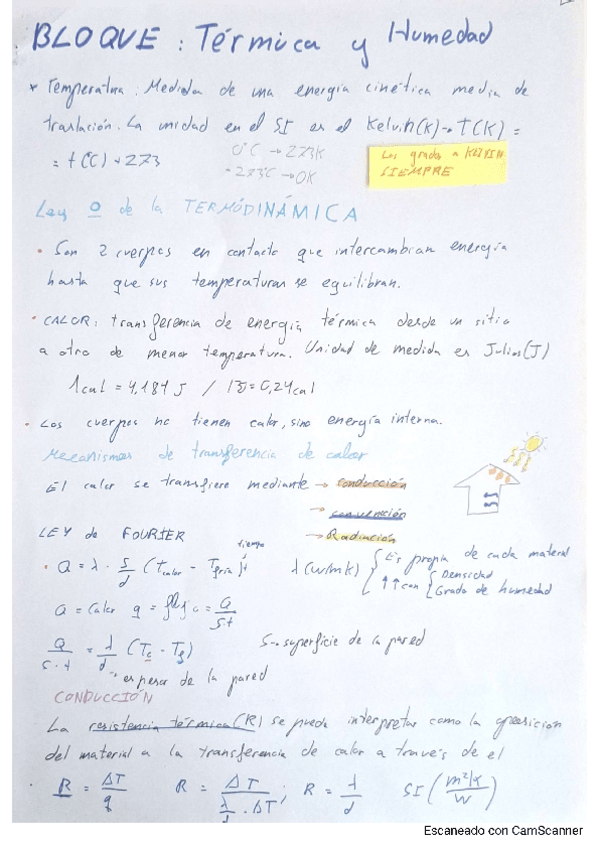 BLOQUE: Térmica y Humedad
* Temperatura. Medida de una energía cinética media de
traslación. La unidad en el SI es el Kelvin(K)→T(K) =
= t(ºC) + 273
0ºC → 273K
-273ºC → 0K
Los grados a KELVIN
SIEMPRE
Ley 0 de la TERMODINÁMICA
• Son 2 cuerpos en contacto que intercambian energía
hasta que sus temperaturas se equilibran.
• CALOR: transferencia de energía térmica desde un sitio
a otro de menor temperatura. Unidad de medida es Julios(J)
1cal = 4,184 J / 1J = 0,24cal
• Los cuerpos no tienen calor, sino energía interna.
Mecanismos de transferencia de calor
El calor se transfiere mediante → conducción
→ convección
→ Radiación
LEY de FOURIER
tiempo
• Q = λ · S/d (Tcalor - Tfría)t
λ(w/mk) { Es propia de cada material
↑↑ con { Densidad
Grado de humedad
Q = Calor q = flujo = Q/S·t
Q/S·t = λ/d (Tc - Tf)
S → superficie de la pared
→ espesor de la pared
CONDUCCIÓN
La resistencia térmica (R) se puede interpretar como la oposición
del material a la transferencia de calor a través de el
• R = ΔT/q R = ΔT/(λ/d · ΔT); R = λ/d SI (m²K/W)
Escaneado con CamScanner